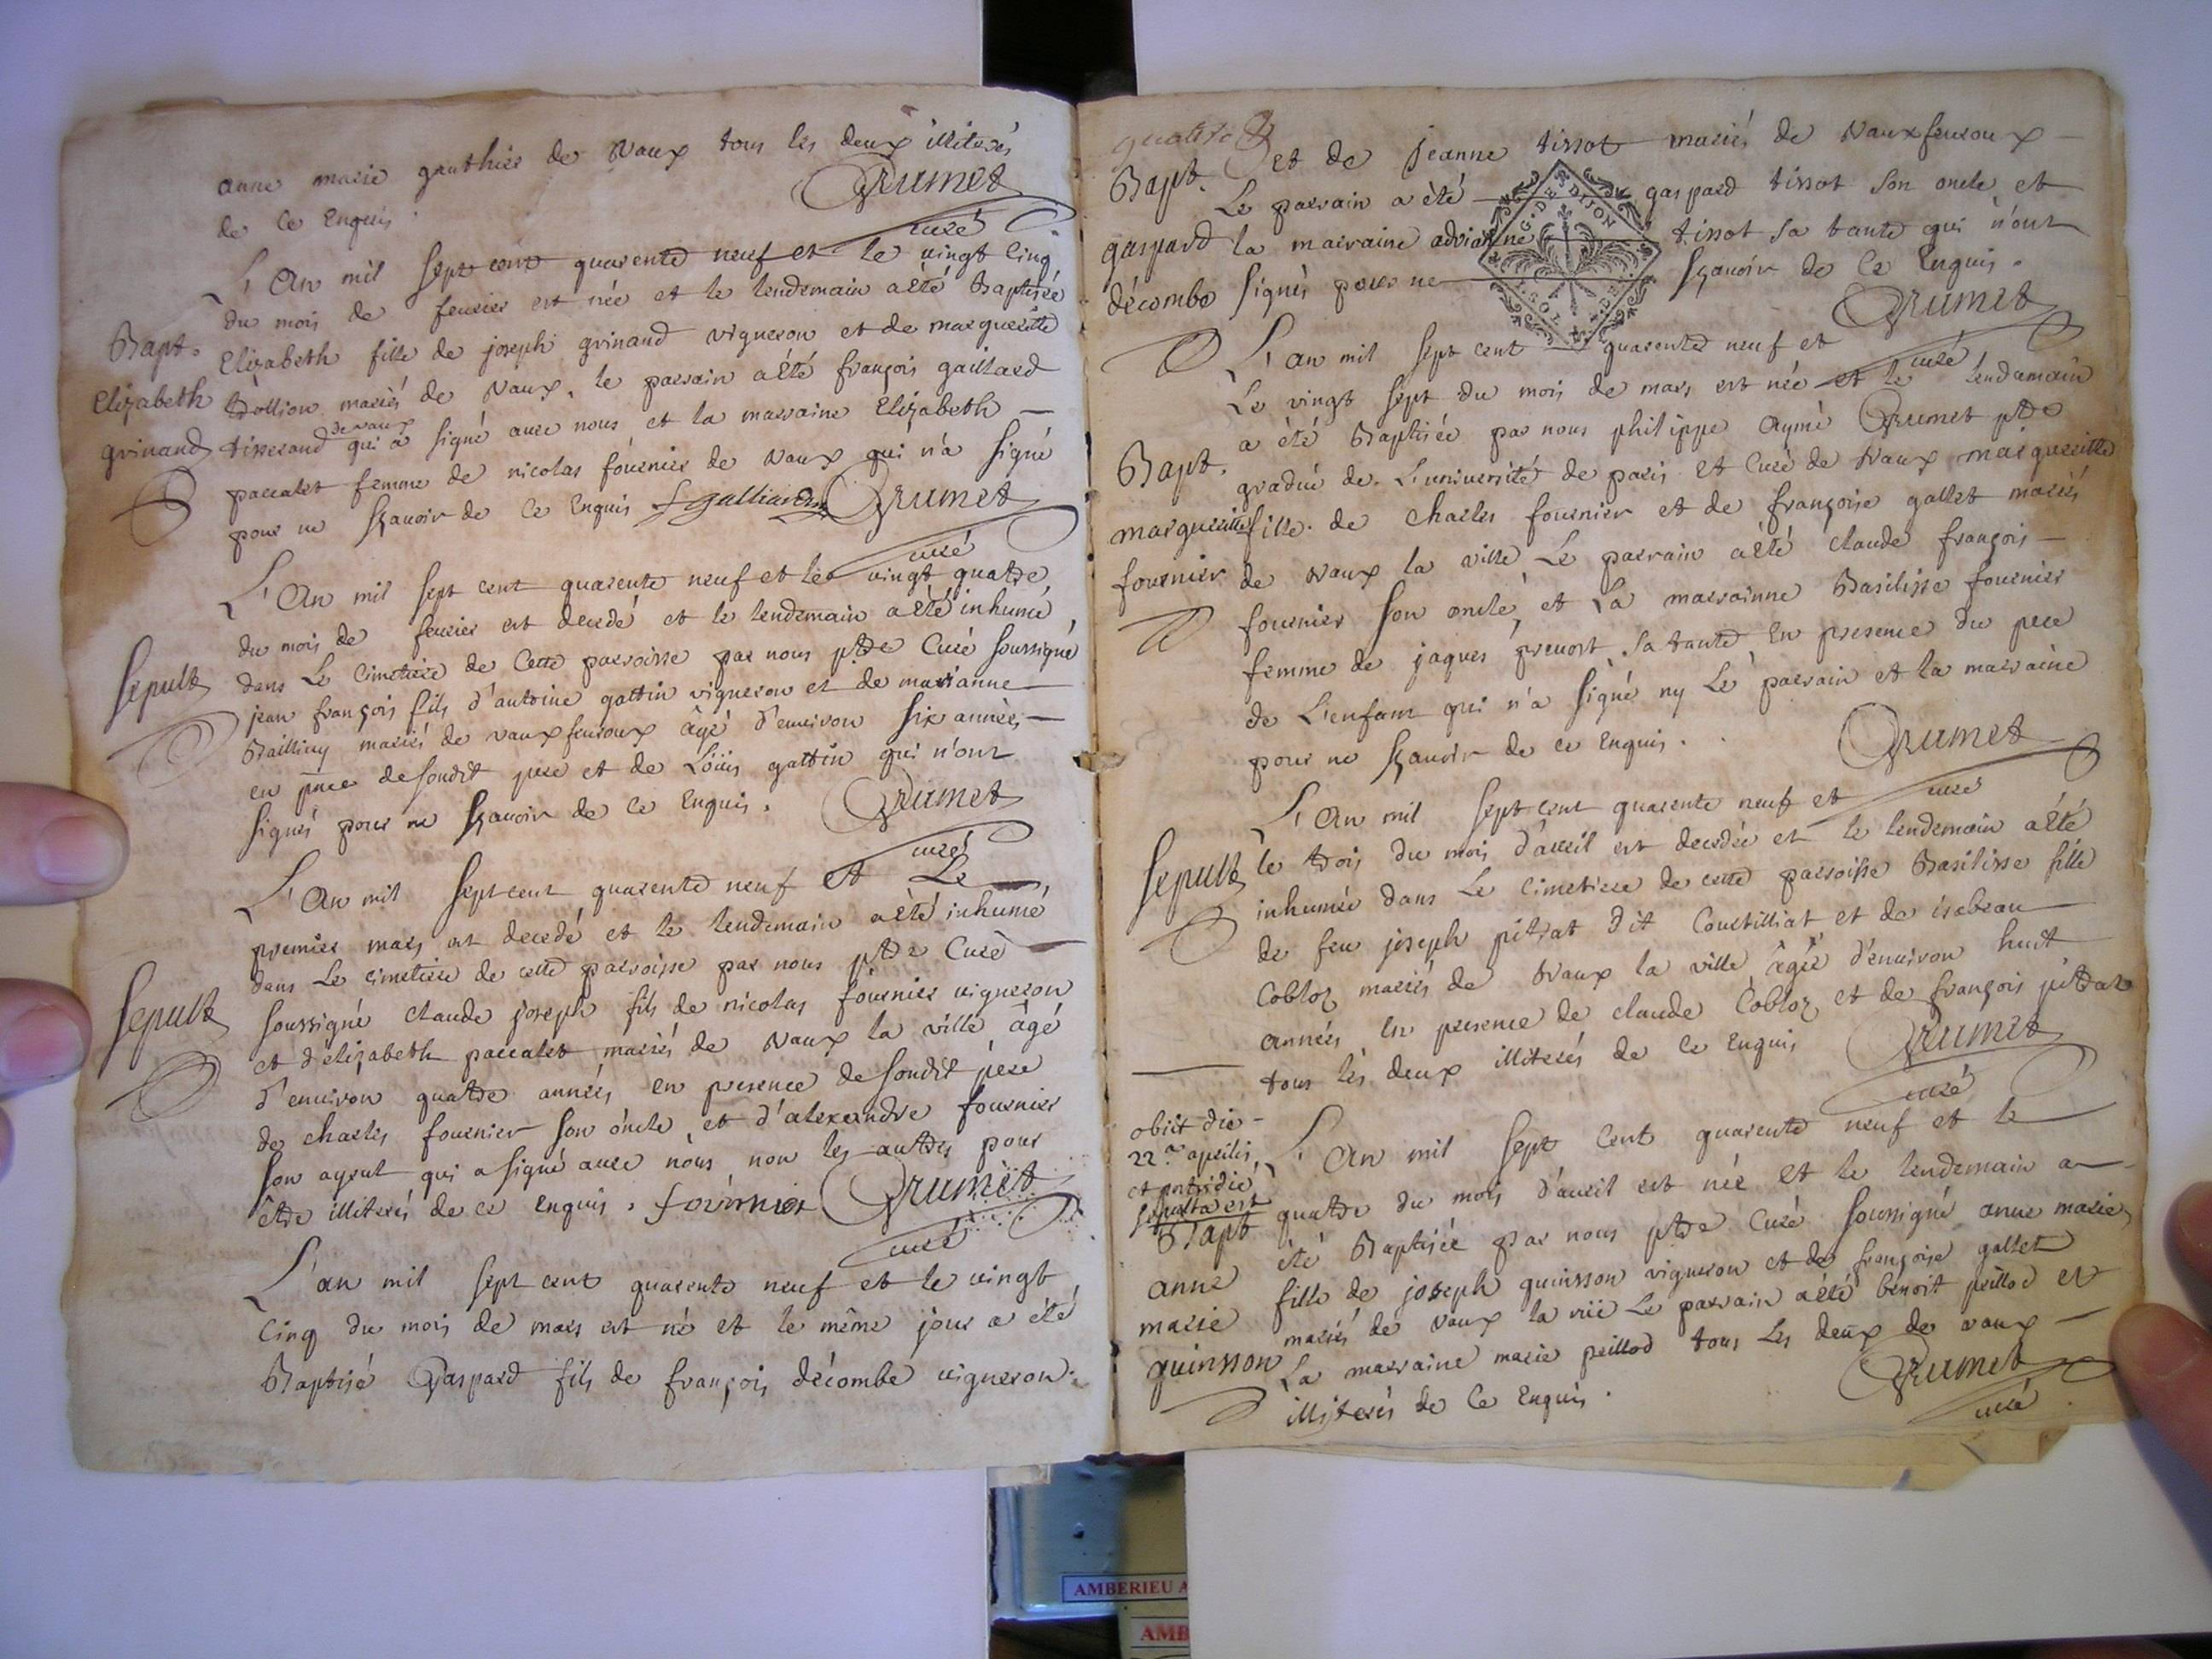 anne marie gauthier de Vaux tous les deux illiterés
de ce Enquis.
Drumet
curé
L'An mil sept cent quarente neuf et le vingt cinq
du mois de feurier est née et le lendemain a été Baptisée
Bapt.
Elizabeth
grinand
Elizabeth fille de joseph grinand vigneron et de marguerite
mariés de Vaux, le parrain a été françois gaillard
de vaux
tisserand qui a signé auec nous et la marraine Elizabeth
paccalet femme de nicolas fournier de Vaux qui n'a signé
pour ne sçauoir de ce Enquis
Drumet
curé
L'An mil sept cent quarente neuf et le vingt quatre
du mois de feurier est decedé et le lendemain a été inhumé
Sepult
dans Le Cimetiere de Cette parroisse par nous ptre Curé soussigné
jean françois fils d'antoine gattin vigneron et de marianne
mariés de vauxfeuroux âgé d'enuiron six années
en pnce desondit pere et de Loüis gattin qui n'ont
signés pour ne sçauoir de ce Enquis.
Drumet
curé
L'An mil sept cent quarente neuf et Le
premier mars est decedé et le lendemain a été inhumé
dans Le cimetiere de cette parroisse par nous ptre Curé
Sepult
soussigné claude joseph fils de nicolas fournier vigneron
et d'elizabeth paccalet mariés de Vaux la ville âgé
d'enuiron quatre années en presence desondit pere
de charles fournier son oncle, et d'alexandre fournier
son ayeul qui a signé auec nous non les autres pour
être illiterés de ce Enquis. fournier Drumet
curé
L'an mil sept cent quarente neuf et le vingt
Cinq du mois de mars est né et le même jour a été
Baptisé Gaspard fils de françois décombe vigneron.
Bapt.
gaspard
décombe
et de jeanne tissot mariés de Vauxfeuroux
G. DE DIJON
Le parrain a été gaspard tissot son oncle et
la marraine adrianne tissot sa tante qui n'ont
signés pour ne sçauoir de ce Enquis.
Drumet
curé
L'an mil sept cent quarente neuf et
Le vingt sept du mois de mars est née et le lendemain
a été Baptisée par nous philippe Aymé Drumet ptre
Bapt.
marguerite
fournier
gradué de L'université de paris et Curé de Vaux marguerite
fille de charles fournier et de françoise gallet mariés
de Vaux la ville Le parrain a été claude françois
fournier son oncle, et La marrainne Basilisse fournier
femme de jaques preuost sa tante, En presence du pere
de L'enfant qui n'a signé ny Le parrain et la marraine
pour ne sçauoir de ce Enquis.
Drumet
curé
L'An mil sept cent quarente neuf et
Sepult
le trois du mois d'auril est decedée et le lendemain a été
inhumée dans Le Cimetiere de cette parroisse Basilisse fille
de feu joseph pitrat dit Courtilliat et de isabeau
Cobloz mariés de Vaux la ville âgée d'enuiron huit
années En presence de claude Cobloz et de françois pittrat
tous les deux illiterés de ce Enquis
Drumet
curé
obiit die
22.a aprilis
et postridie
sepulta est
L'An mil sept Cent quarente neuf et le
quatre du mois d'auril est née et le lendemain a
Bapt
anne
marie
guinsson
été Baptisée par nous ptre Curé soussigné anne marie
fille de joseph guinsson vigneron et de françoise gallet
mariés de Vaux la Le parrain a été benoit peillod et
La marraine marie peillod tous Les deux de vaux
illiterés de ce Enquis.
Drumet
curé
AMBERIEU A
AMB